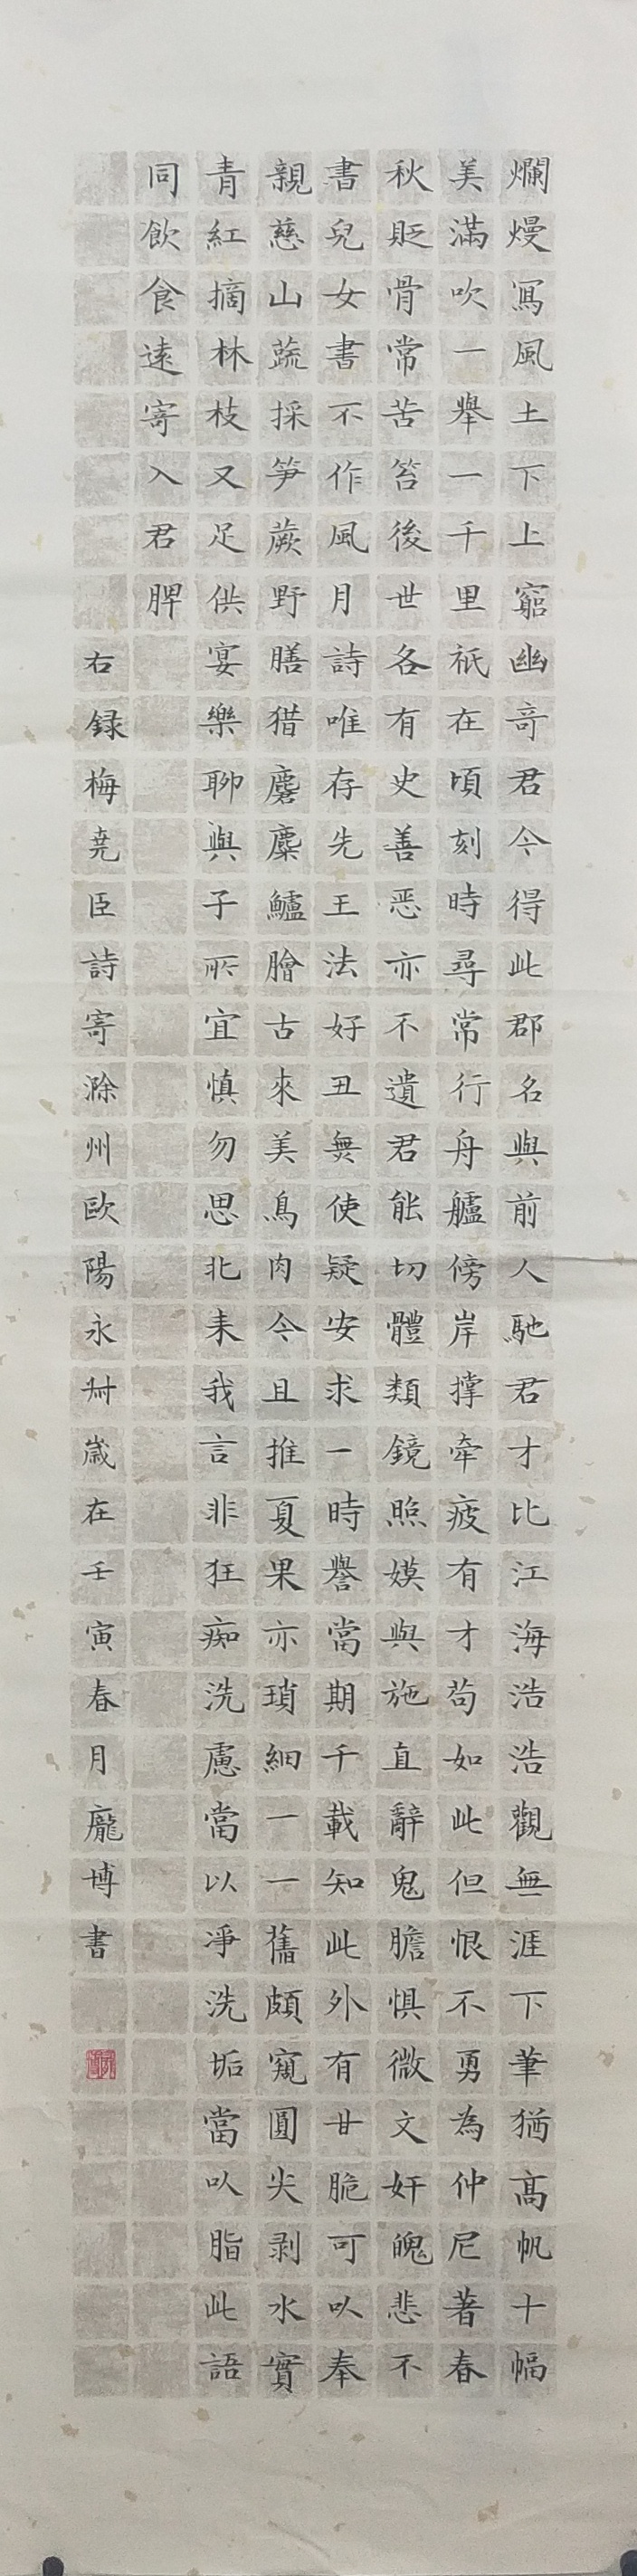 爛熳寫風土下上窮幽奇君今得此郡名與前人馳君才比江海浩浩觀無涯下筆猶高帆十幅
美滿吹一舉一千里祇在頃刻時尋常行舟艫傍岸撑牽疲有才苟如此但恨不勇為仲尼著春
秋貶骨常苦笞後世各有史善惡亦不遺君能切體類鏡照嫫與施直辭鬼膽懼微文奸魄悲不
書兒女書不作風月詩唯存先王法好丑無使疑安求一時譽當期千載知此外有甘脆可以奉
親慈山蔬採笋蕨野膳猎麏麋鱸膾古來美鳥肉今且推夏果亦瑣細一一舊頗窺圓尖剥水實
青紅摘林枝又足供宴樂聊與子所宜慎勿思北来我言非狂痴洗慮當以净洗垢當以脂此語
同飲食遠寄入君脾
右録梅尭臣詩寄滁州歐陽永叔歲在壬寅春月龐博書